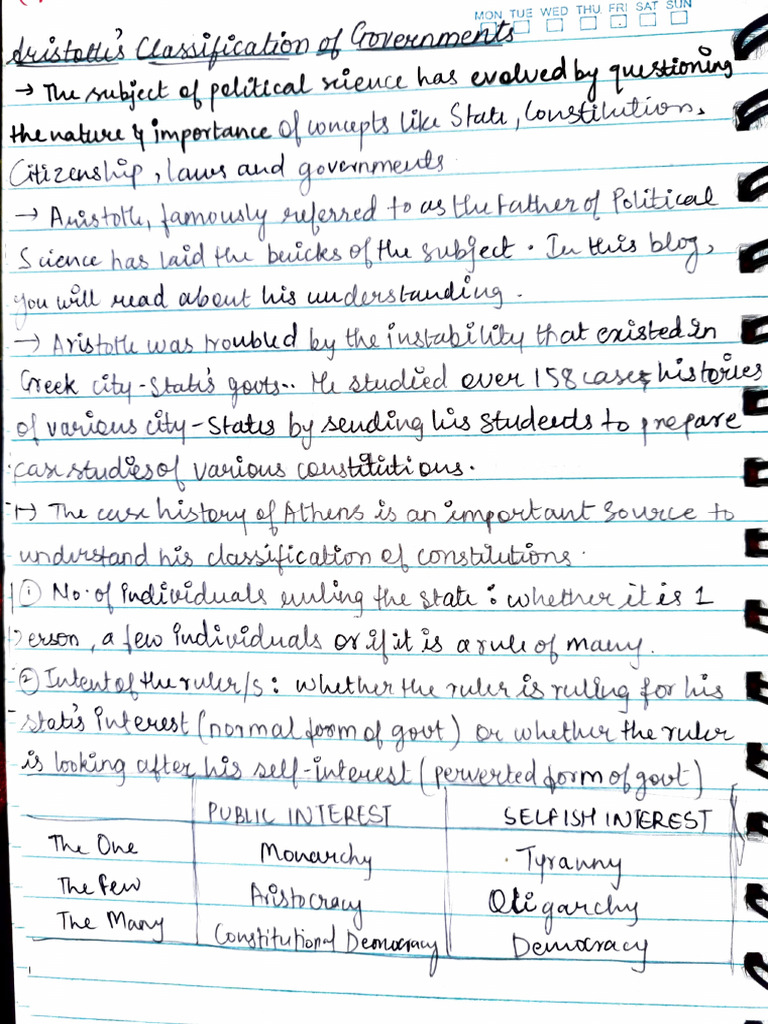 MON TUE WED THU FRI SAT SUN
Aristotle's Classification of Governments
→ The subject of political science has evolved by questioning
the nature & importance of concepts like State, Constitution,
Citizenship, laws and governments.
→ Aristotle, famously referred to as the Father of Political
Science has laid the bricks of the subject. In this blog,
you will read about his understanding.
→ Aristotle was troubled by the instability that existed in
Greek city-State's govts.. He studied over 158 cases histories
of various city-States by sending his students to prepare
case studies of various constitutions.
→ The case history of Athens is an important source to
understand his classification of constitutions.
① No. of individuals ruling the state : whether it is 1
Person, a few individuals or if it is a rule of many.
② Intent of the ruler/s : whether the ruler is ruling for his
state's interest (normal form of govt) or whether the ruler
is looking after his self-interest (perverted form of govt)
PUBLIC INTEREST SELFISH INTEREST
The One Monarchy Tyranny
The Few Aristocracy Oligarchy
The Many Constitutional Democracy Democracy